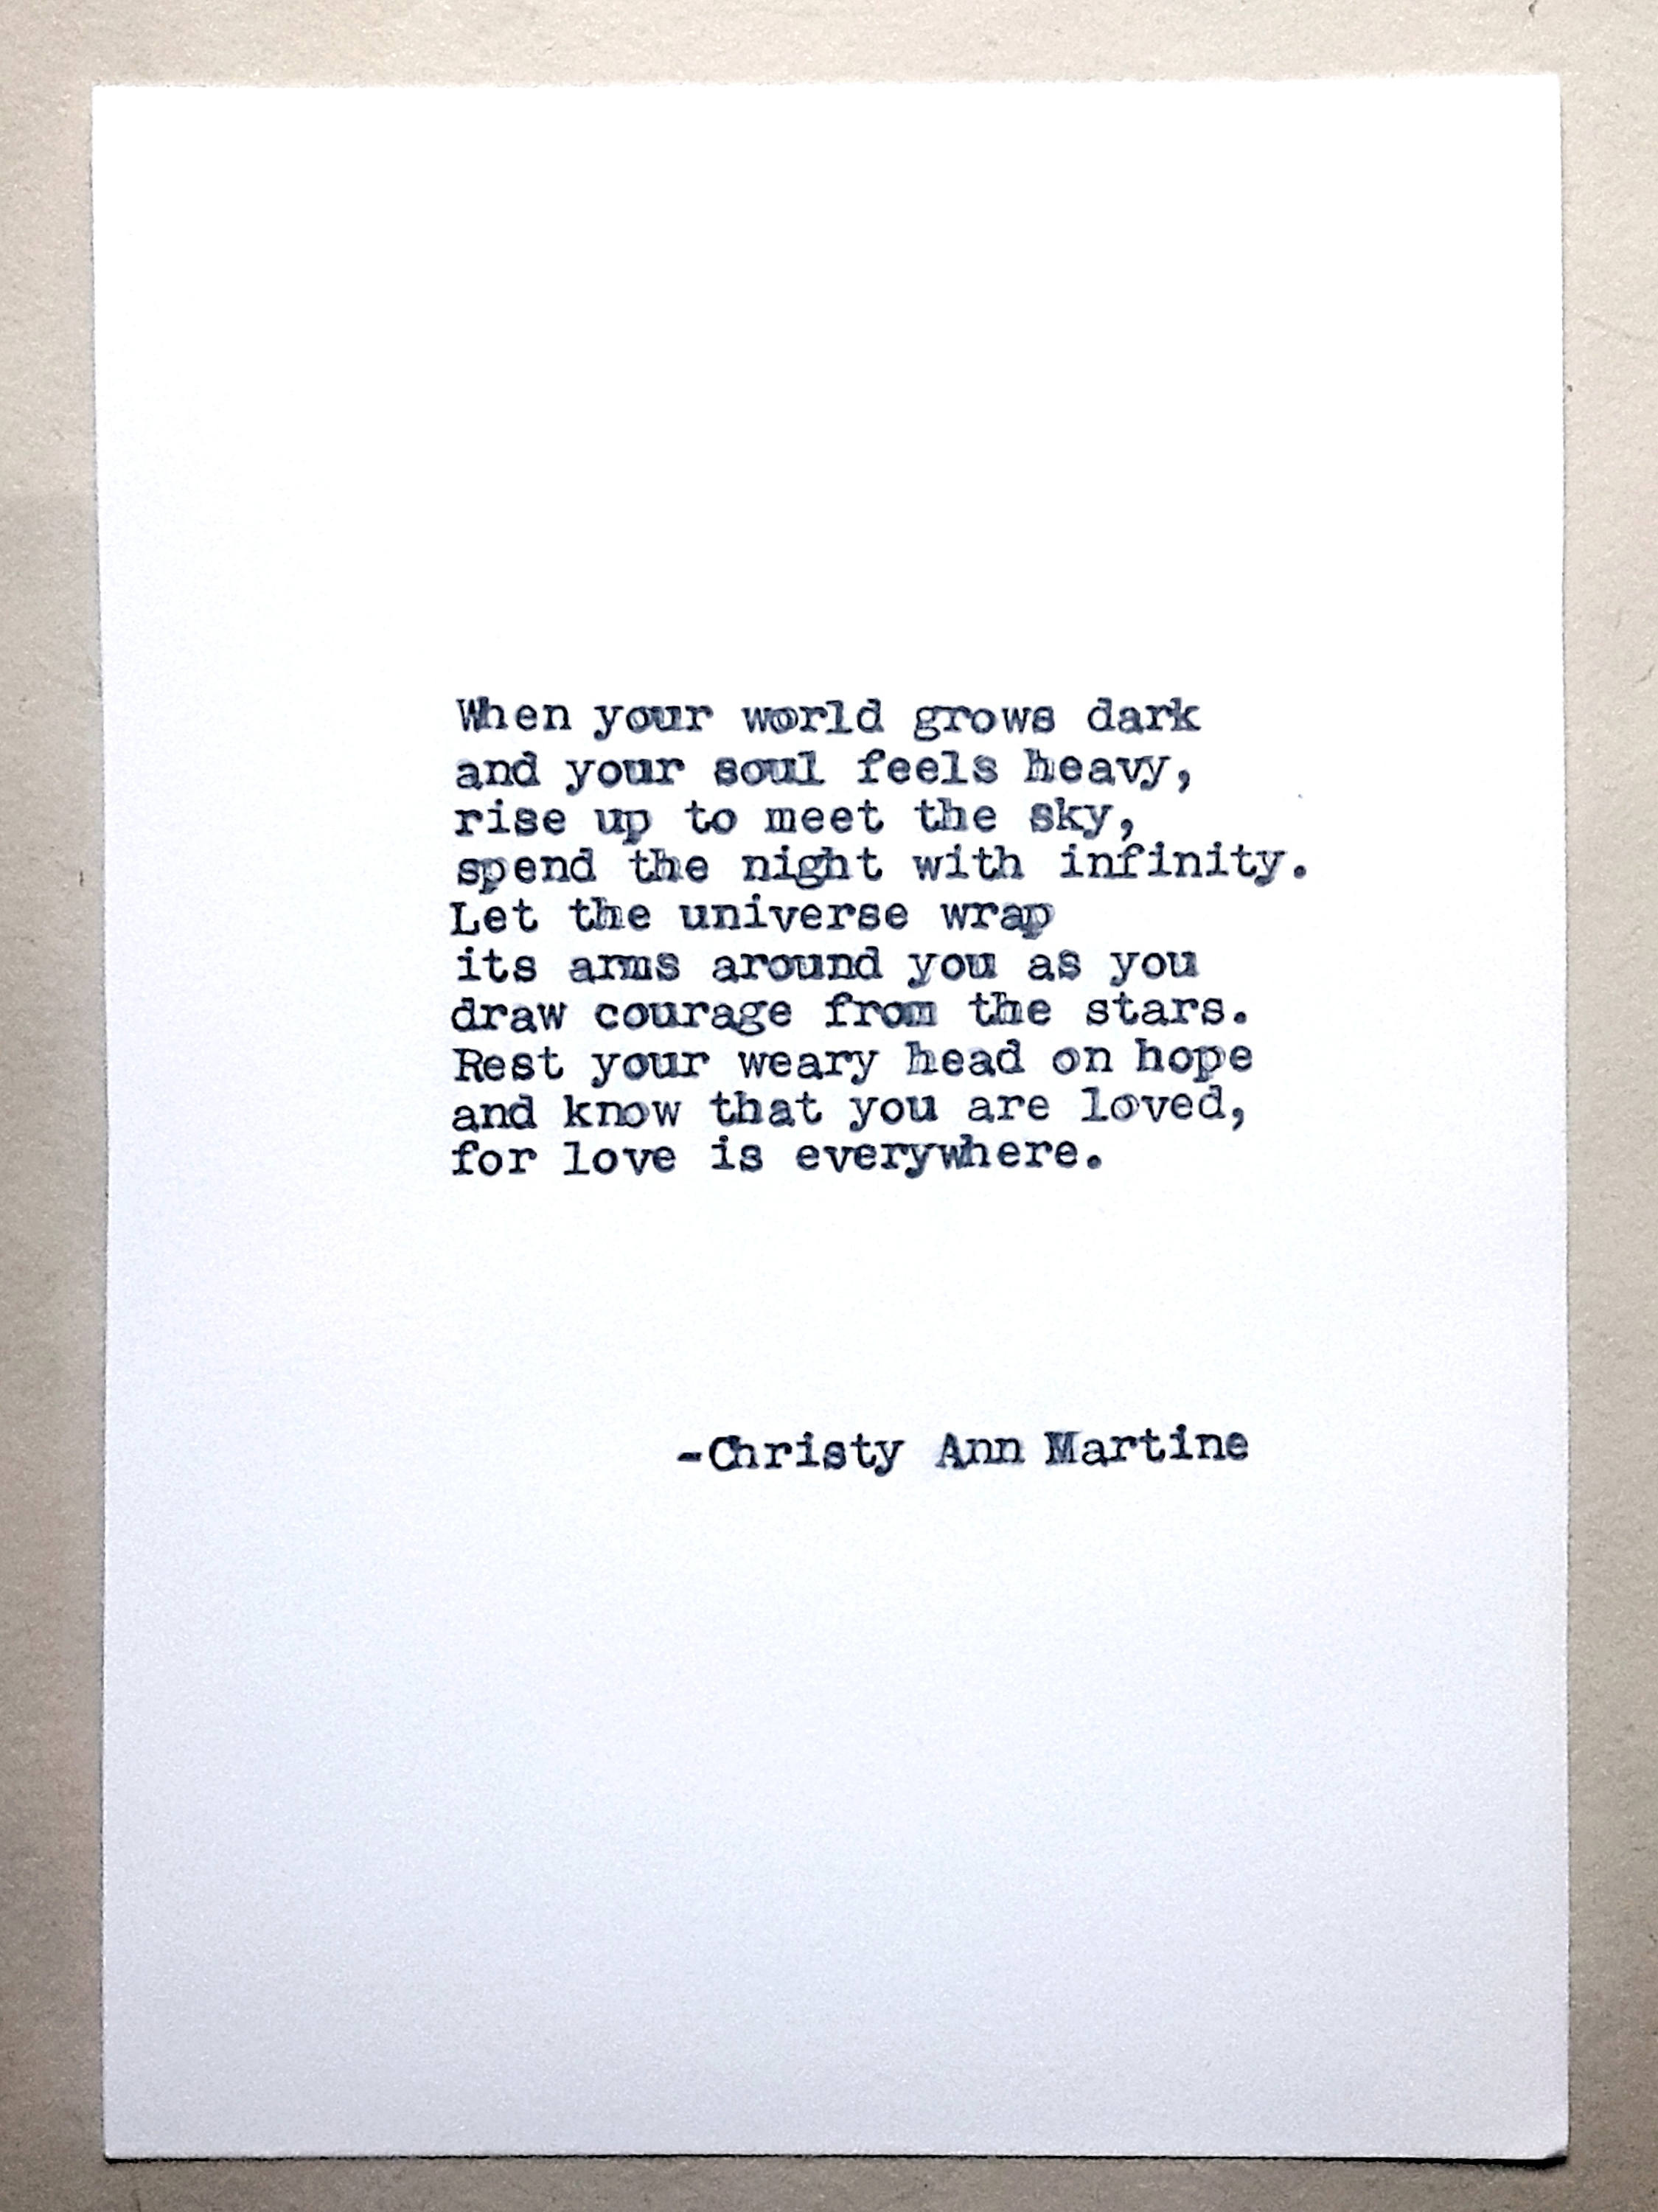 When your world grows dark
and your soul feels heavy,
rise up to meet the sky,
spend the night with infinity.
Let the universe wrap
its arms around you as you
draw courage from the stars.
Rest your weary head on hope
and know that you are loved,
for love is everywhere.
-Christy Ann Martine